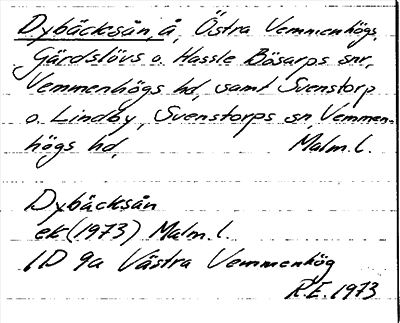 Dybäcksån å, Östra Vemmenhögs,
Gärdslövs o. Hassle Bösarps snr,
Vemmenhögs hd, samt Svenstorp
o. Lindby, Svenstorps sn, Vemmen-
högs hd, Malm. l.
Dybäcksån
ek (1973) Malm. l.
1D 9a Västra Vemmenhög
R.E. 1973